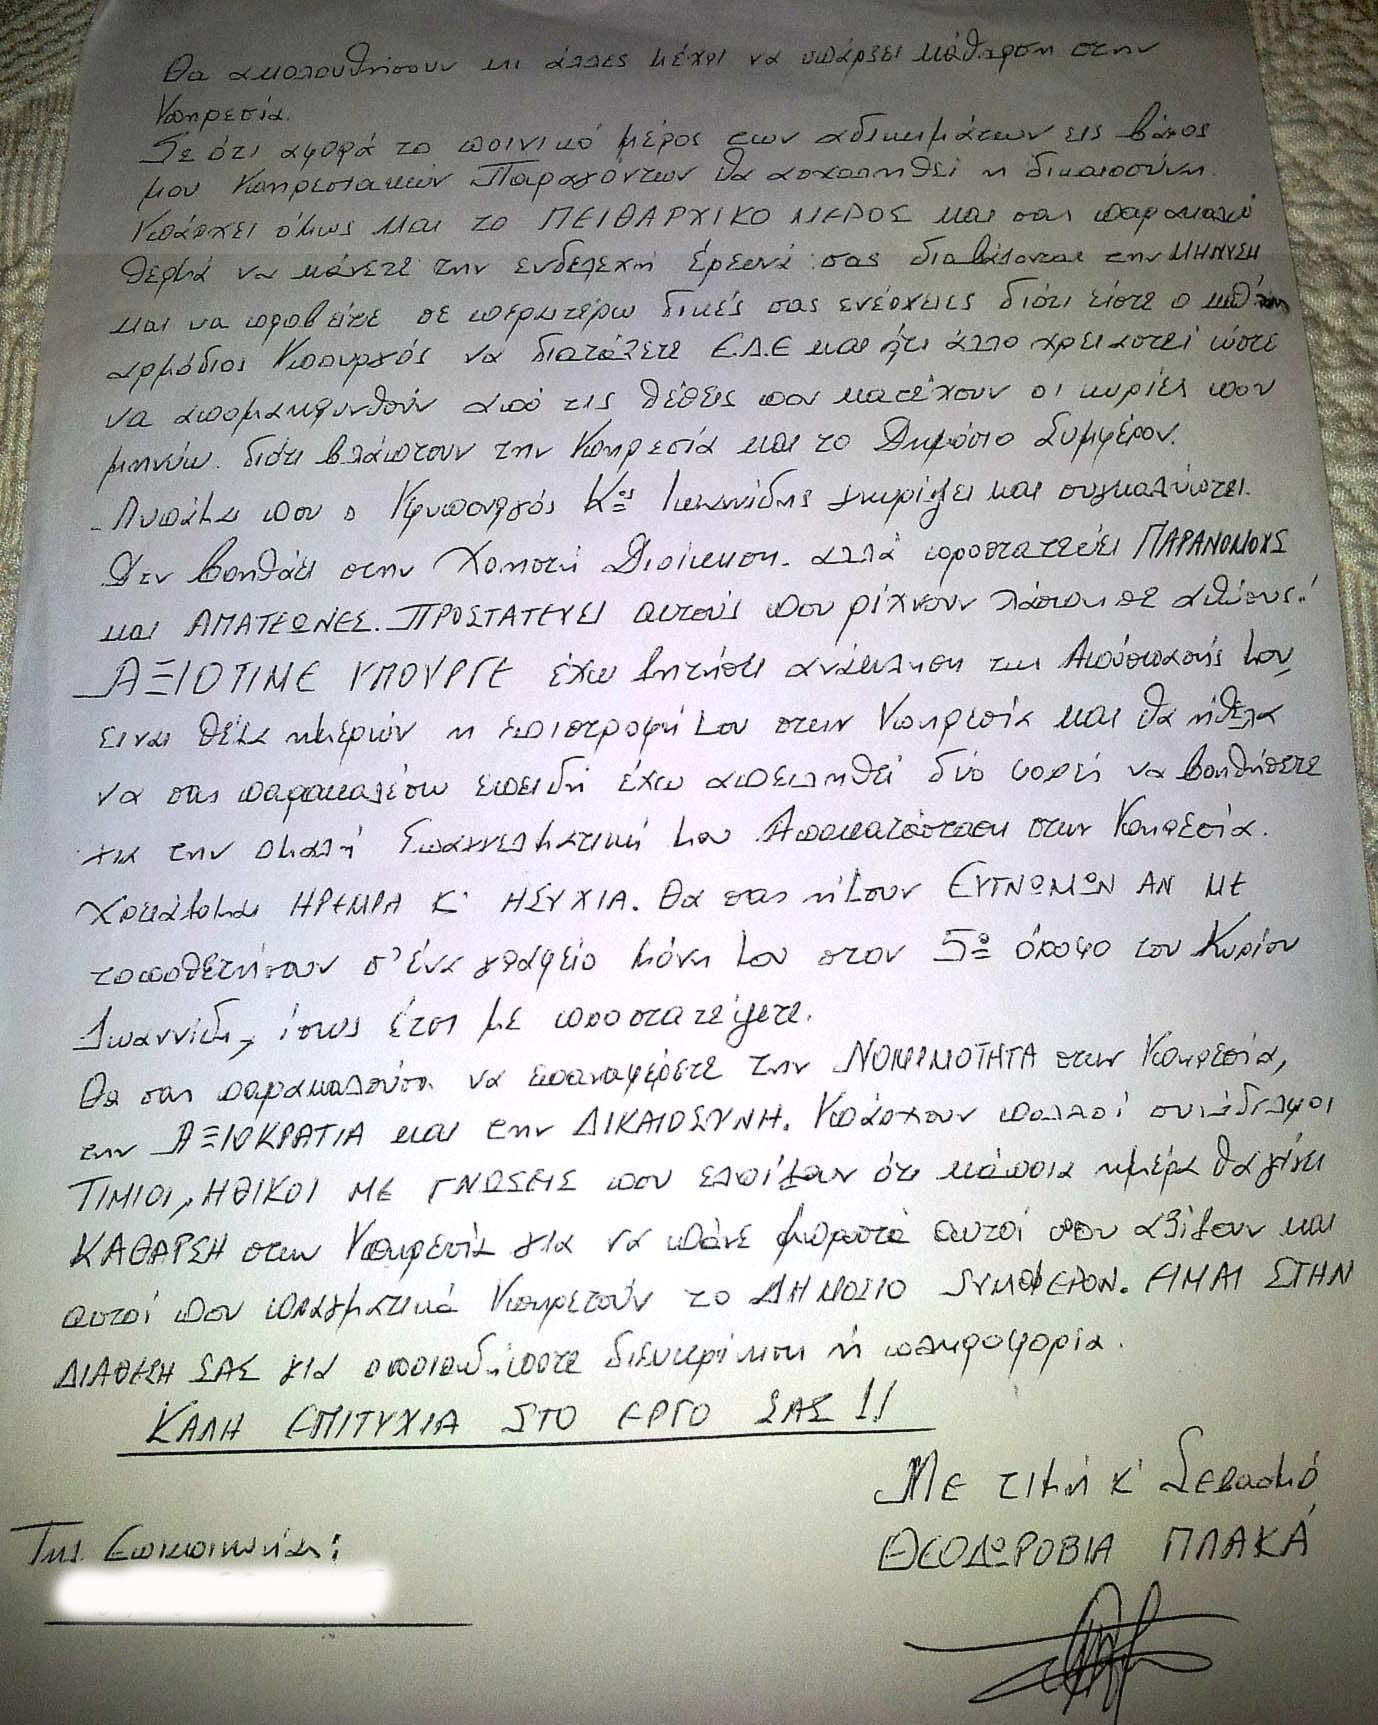 Θα ακολουθήσουν κι άλλες μέχρι να υπάρξει κάθαρση στην
Υπηρεσία.
Σε ότι αφορά το ποινικό μέρος των αδικιμάτων εις βάρος
μου Υπηρεσιακών Παραγόντων θα ασχοληθεί η δικαιοσύνη.
Υπάρχει όμως και το ΠΕΙΘΑΡΧΙΚΟ ΜΕΡΟΣ και σας παρακαλώ
θερμά να κάνετε την ενδελεχή έρευνά σας διαβάζοντας την ΜΗΝΥΣΗ
και να προβείτε σε περετέρω δικές σας ενέργειες διότι είστε ο καθ'
αρμόδιος Υπουργός να διατάξετε Ε.Δ.Ε και ότι άλλο χρειαστεί ώστε
να απομακρυνθούν από τις θέσεις που κατέχουν οι κυρίες που
μηνύω. διότι βλάπτουν την Υπηρεσία και το Δημόσιο Συμφέρον.
Λυπάμαι που ο Υφυπουργός Κος Ιωαννίδης γνωρίζει και συγκαλύπτει.
Δεν βοηθάει στην Χρηστή Διοίκηση. αλλά προστατεύει ΠΑΡΑΝΟΜΟΥΣ
και ΑΜΑΤΕΩΝΕΣ. ΠΡΟΣΤΑΤΕΥΕΙ αυτούς που ρίχνουν λάσπη σε αθώους!
ΑΞΙΟΤΙΜΕ ΥΠΟΥΡΓΕ έχω ζητήσει ανάκληση της Απόσπασής μου,
ειναι θέμα ημερών η επιστροφή μου στην Υπηρεσία και θα ήθελα
να σας παρακαλέσω επειδή έχω απειληθεί δύο φορές να βοηθήσετε
για την ομαλή Επαγγελματική μου Αποκατάσταση στην Υπηρεσία.
Χρειάζομαι ΗΡΕΜΡΑ Κ' ΗΣΥΧΙΑ. Θα σας ήμουν ΕΥΓΝΩΜΩΝ ΑΝ ΜΕ
τοποθετήσουν σ'ένα γραφείο μόνη μου στον 5ο όροφο του Κυρίου
Ιωαννίδη, ίσως έτσι με προστατέψετε.
Θα σας παρακαλούσα να επαναφέρετε την ΝΟΜΙΜΟΤΗΤΑ στην Υπηρεσία,
την ΑΞΙΟΚΡΑΤΙΑ και την ΔΙΚΑΙΟΣΥΝΗ. Υπάρχουν πολλοί συνάδελφοι
ΤΙΜΙΟΙ, ΗΘΙΚΟΙ ΜΕ ΓΝΩΣΕΙΣ που ελπίζουν ότι κάποια ημέρα θα γίνει
ΚΑΘΑΡΣΗ στην Υπηρεσία για να πάνε μπροστά αυτοί που αξίζουν και
αυτοί που πραγματικά Υπηρετούν το ΔΗΜΟΣΙΟ ΣΥΜΦΕΡΟΝ. ΕΙΜΑΙ ΣΤΗΝ
ΔΙΑΘΕΣΗ ΣΑΣ για οποιαδήποτε διευκρίνηση ή πληροφορία.
ΚΑΛΗ ΕΠΙΤΥΧΙΑ ΣΤΟ ΕΡΓΟ ΣΑΣ!!
Με τιμή κ' Σεβασμό
ΘΕΟΔΩΡΟΒΙΑ ΠΛΑΚΑ
Της Επικοινωνίας: